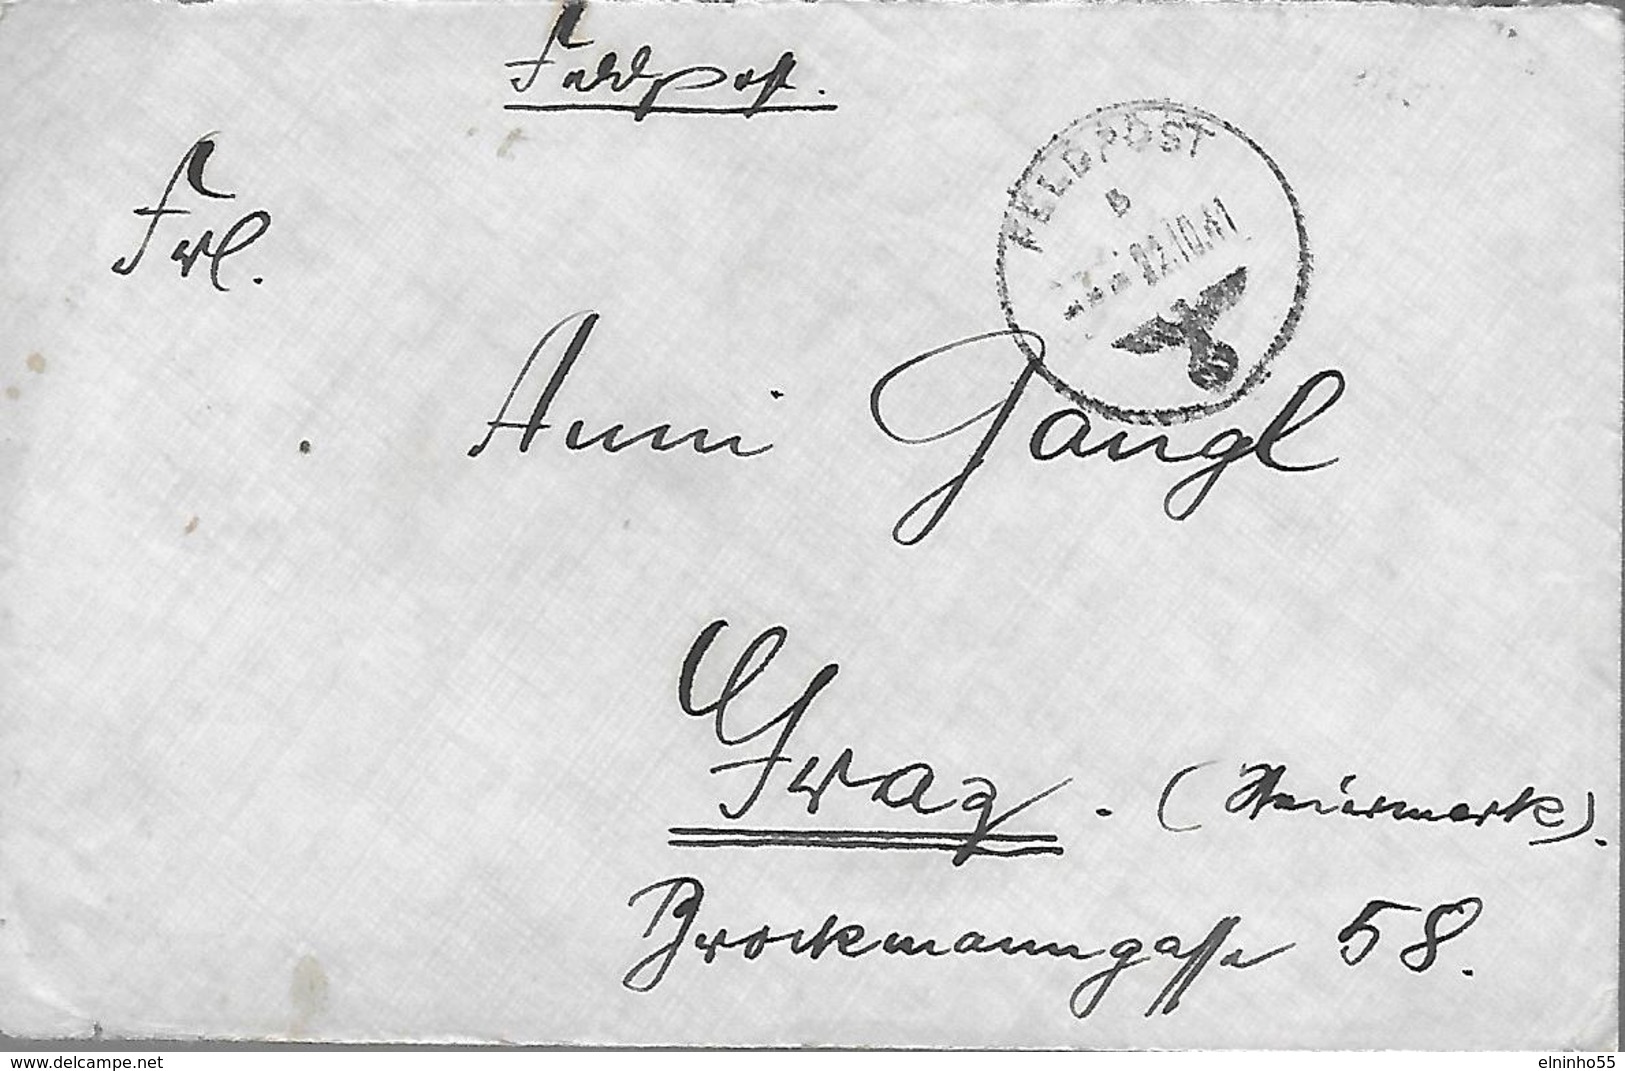 Feldpost.
FELDPOST
b
22.10.41
Frl.
Anni Gangl
Graz. (Steiermark).
Brockmanngasse 58.
www.delcampe.net
elninho55